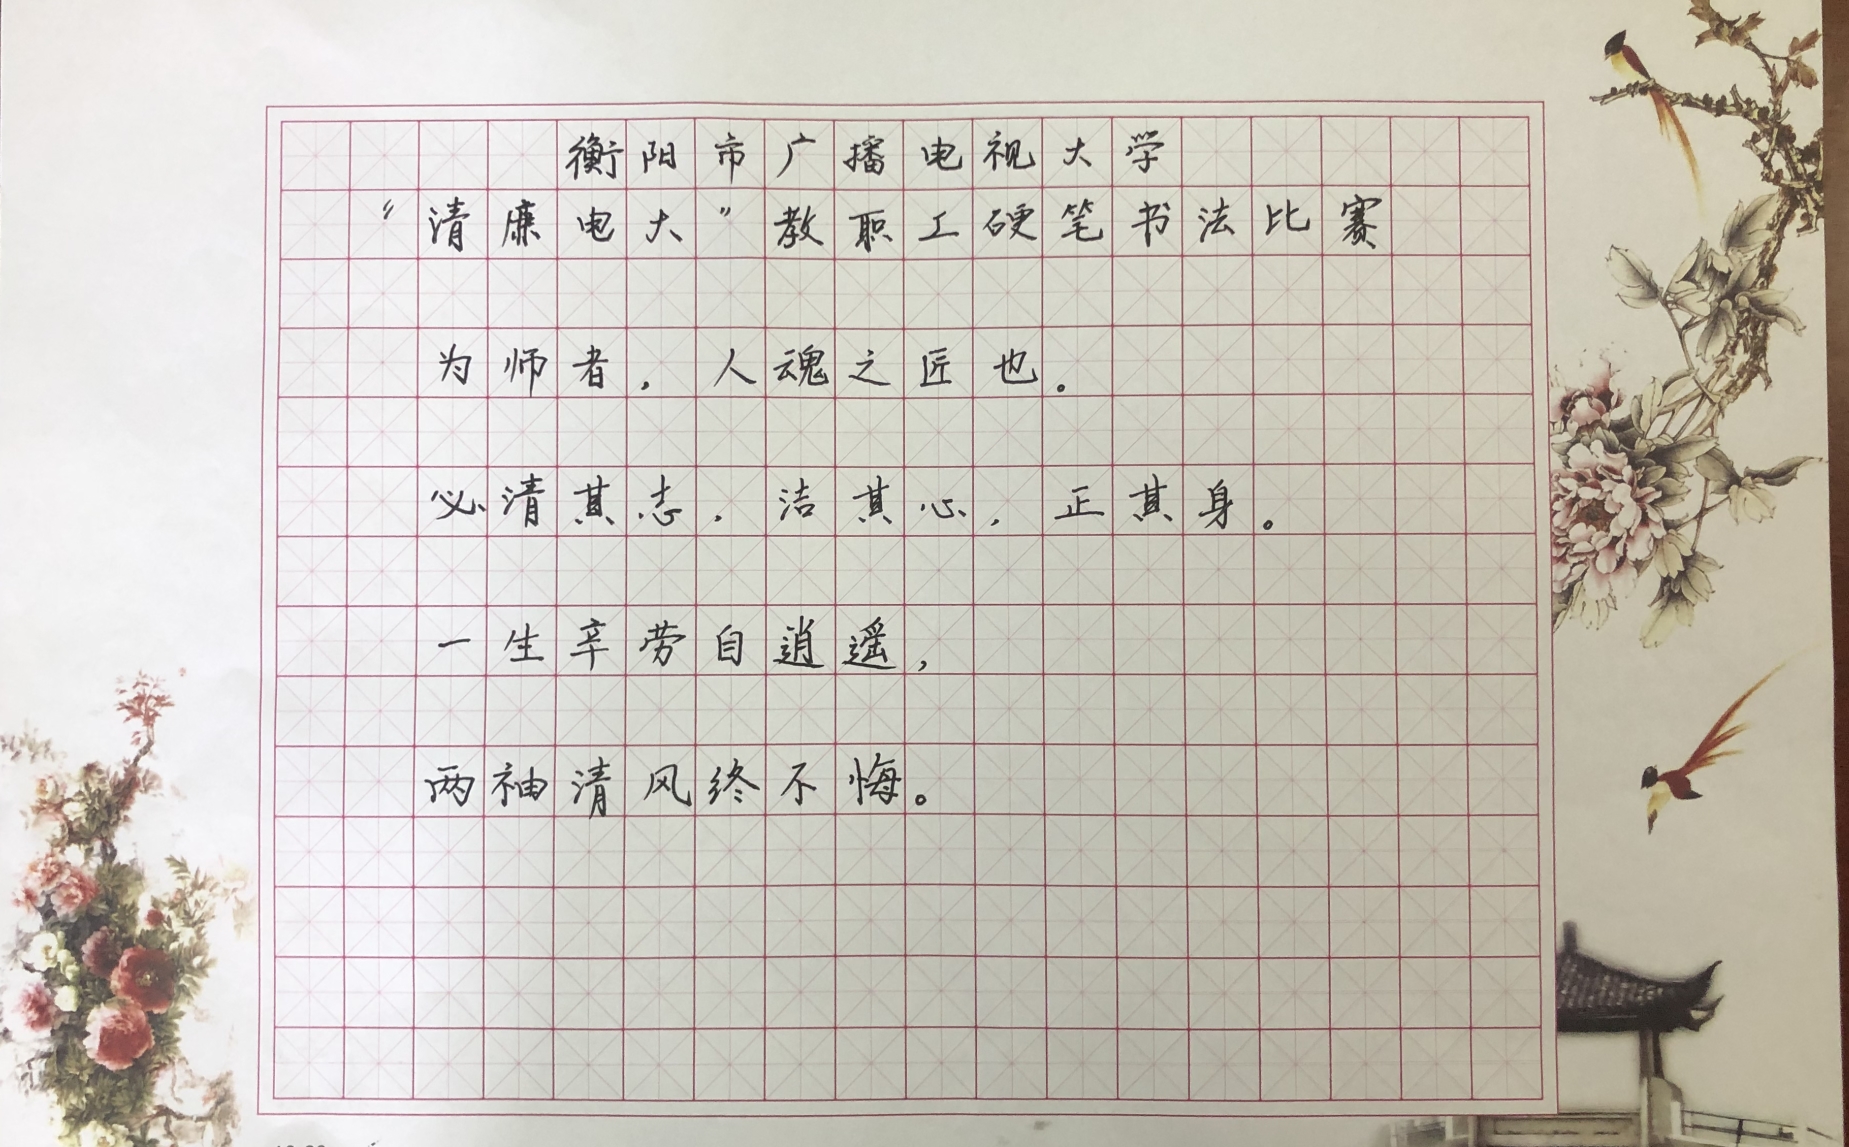 衡阳市广播电视大学
“清廉电大”教职工硬笔书法比赛
为师者，人魂之匠也。
必清其志，洁其心，正其身。
一生辛劳自逍遥，
两袖清风终不悔。